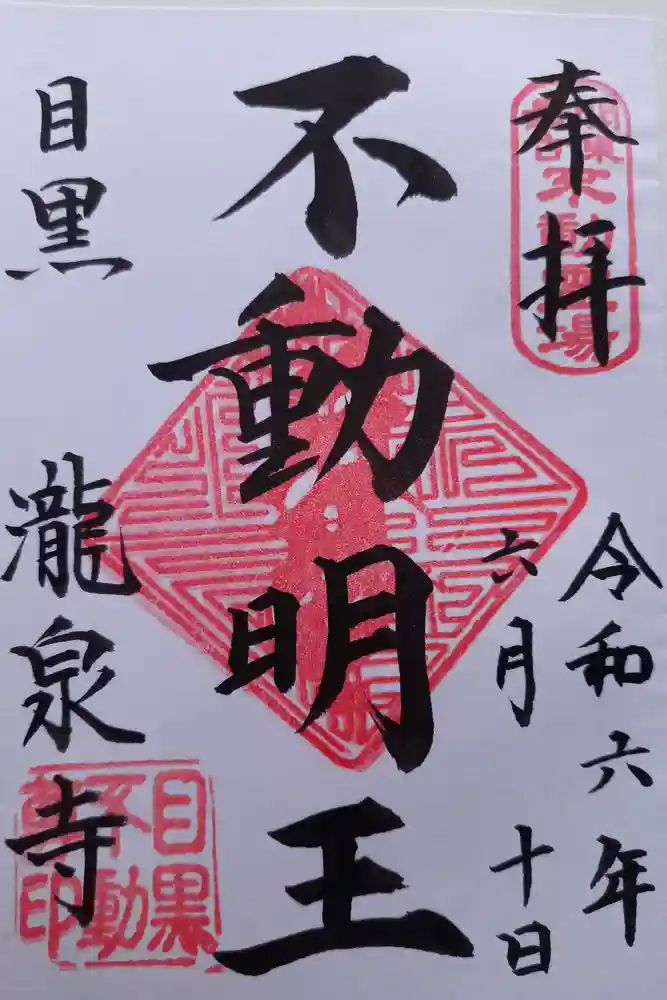 奉拝
令和六年
六月十日
不動明王
目黒 瀧泉寺
目黒
不動